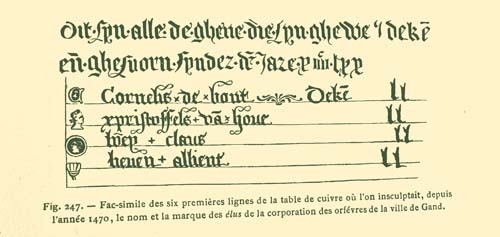 Dit · syn · alle · de · ghene · die · syn · ghewe ꝰ deke̅
en̅ · ghesuorn · syndez · de̅ · Jaze · x iiij · lxx
Cornelis × de × bont Deke̅ ll
xpristoffels + va̅ × houe ll
+ claus ll
heuen + allient ll
Fig. 247. — Fac-simile des six premières lignes de la table de cuivre où l'on insculptait, depuis
l'année 1470, le nom et la marque des élus de la corporation des orfévres de la ville de Gand.